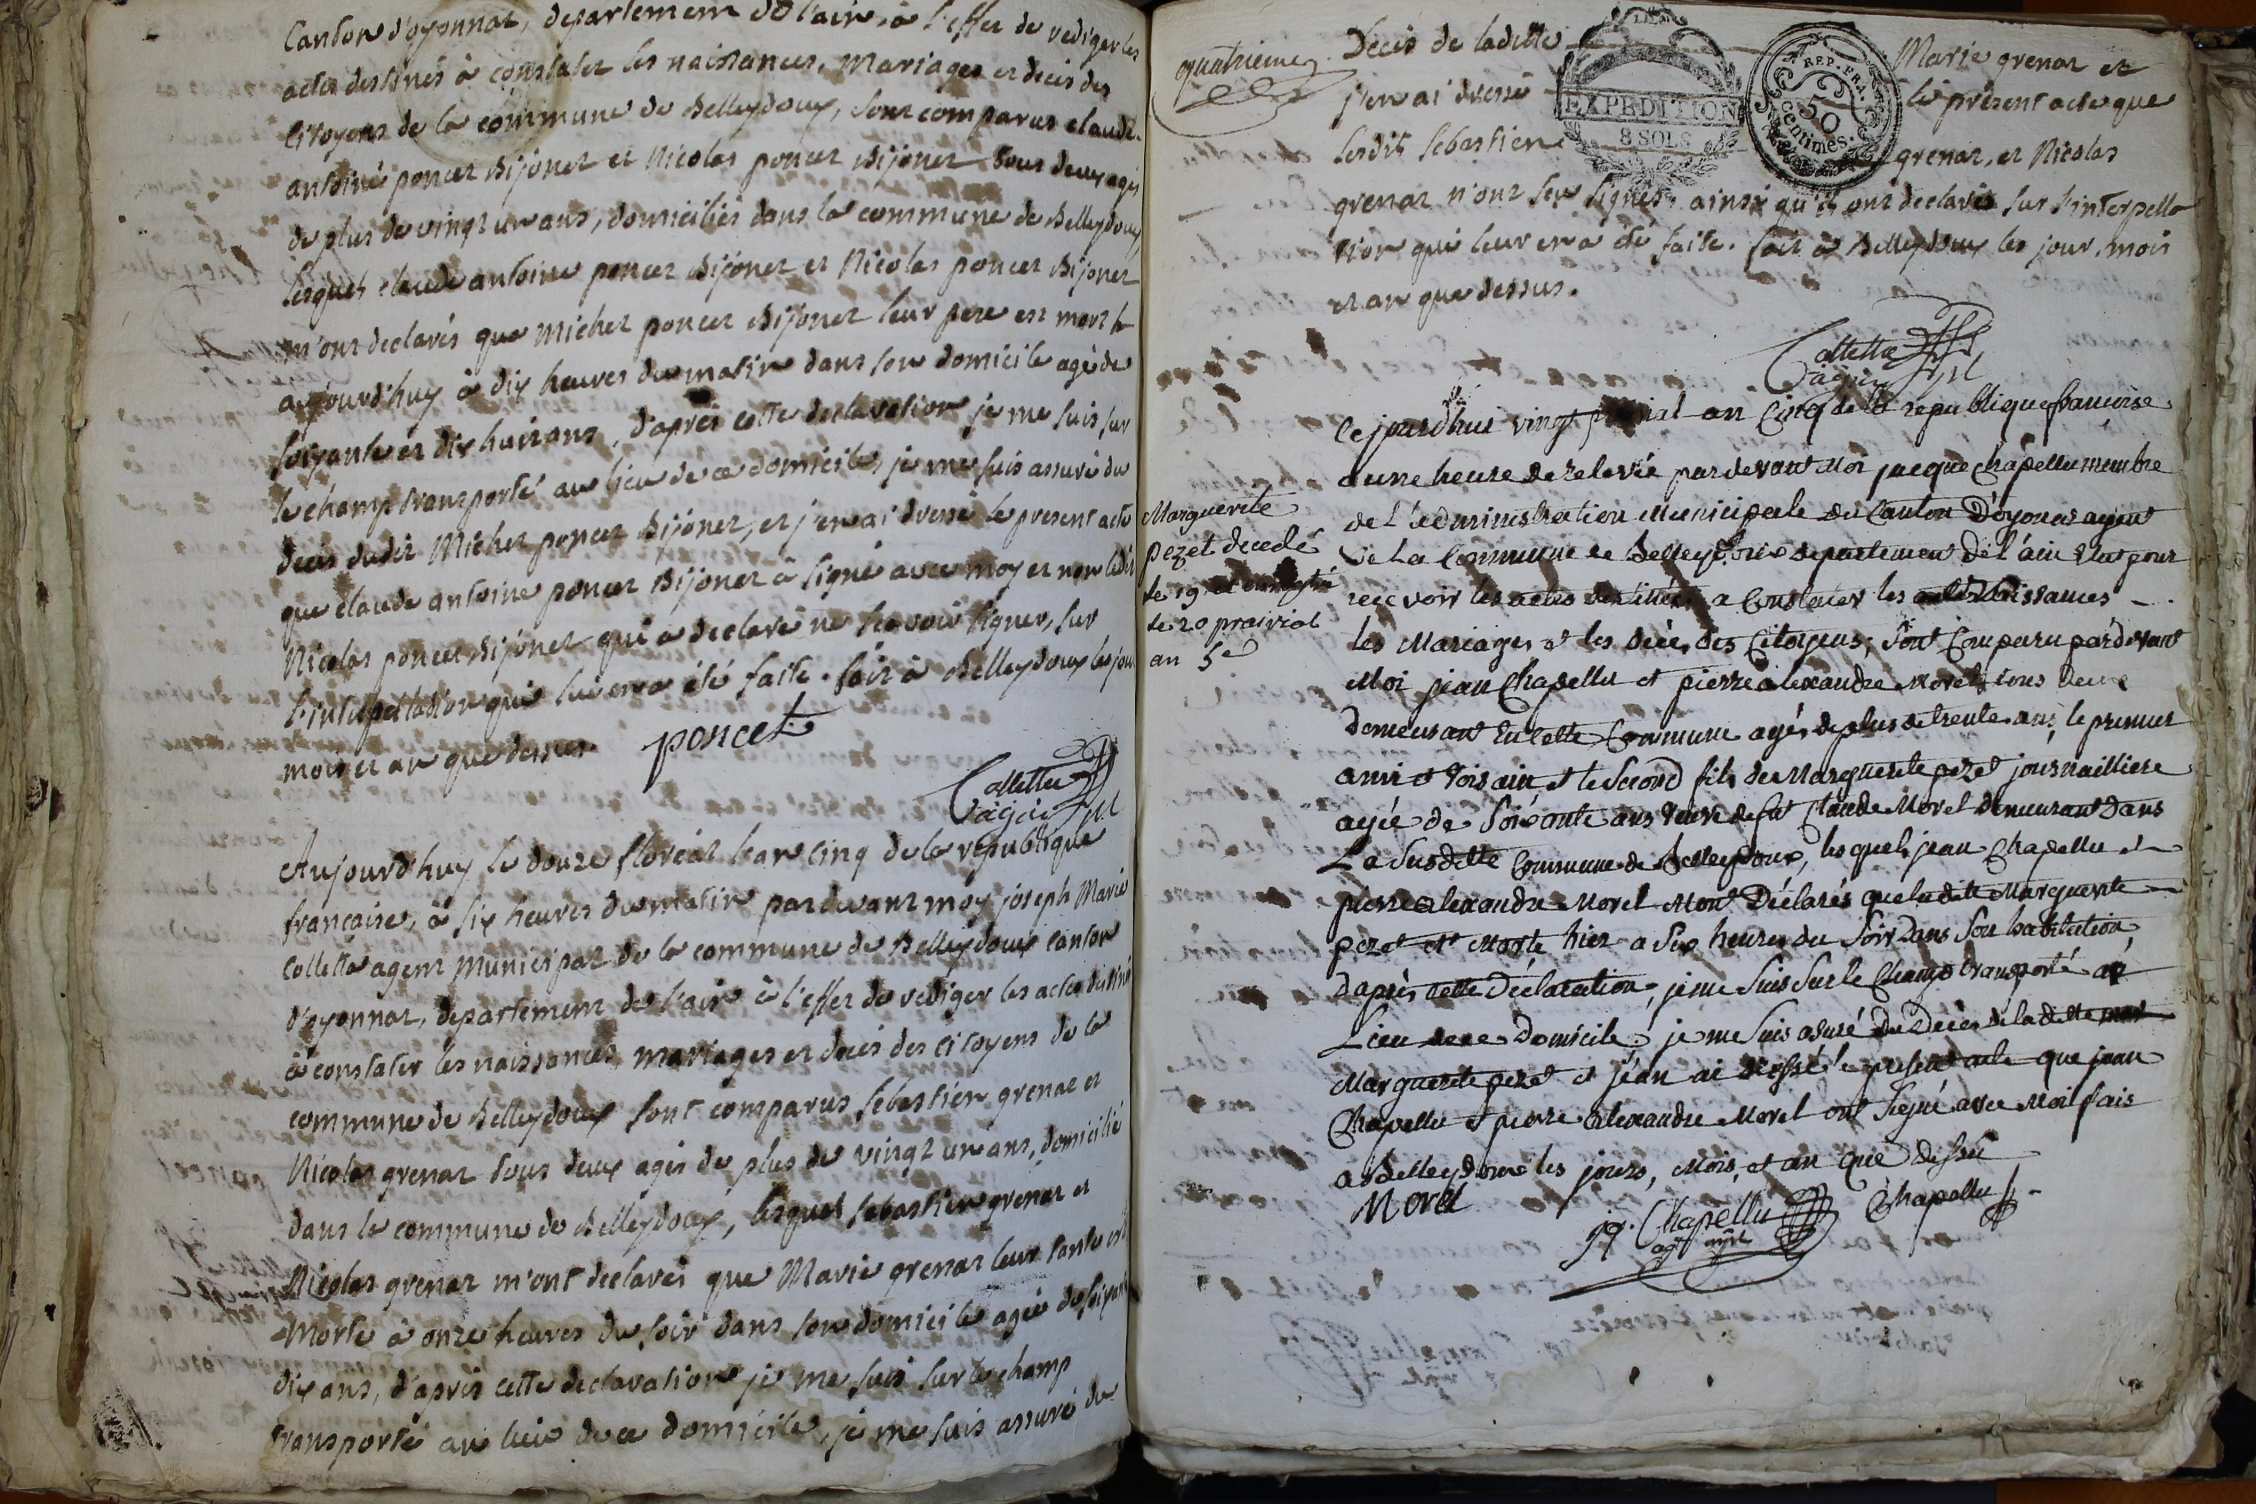 Canton d'oyonnat, departement de l'ain, à l'effet de rediger les
actes destinés à constater les naissances, mariages et decès des
Citoyens de la commune de Belleydoux, sont comparus claude
antoine poncet Bijonet et Nicolas poncet Bijonet tous deux agés
de plus de vingt un ans, domiciliés dans la commune de Belleydoux
lesquels claude antoine poncet Bijonet et Nicolas poncet Bijonet
m'ont declarés que Michel poncet Bijonet leur pere est mort
aujourd'huy à dix heures du matin dans son domicile agé de
soixante et dix huit ans, d'après cette declaration je me suis sur
le champ transporté au lieu de ce domicile, je me suis assuré du
decès dudit Michel poncet Bijonet, et j'en ai dressé le present acte
que claude antoine poncet Bijonet à signé avec moy et non ledit
Nicolas poncet Bijonet qui a declaré ne sçavoir signer, sur
l'interpellation qui lui en a été faite. fait à Belleydoux les jour
mois et an que dessus. poncet
Colletta
agent
Aujourd'huy le douze floréal l'an cinq de la republique
française, à six heures du matin pardevant moy joseph Marie
Colletta agent municipal de la commune de Belleydoux canton
d'oyonnat, departement de l'ain à l'effet de rediger les actes destinés
à constater les naissances, mariages et decès des citoyens de la
commune de Belleydoux sont comparus sebastien grenat et
Nicolas grenat tous deux agés de plus de vingt un ans, domicilié
dans la commune de Belleydoux, lesquels sebastien grenat et
Nicolas grenat m'ont declarés que Marie grenat leur tante est
Morte à onze heures du soir dans son domicile agée de soixante
dix ans, d'après cette declaration je me suis sur le champ
transporté au lieu de ce domicile, je me suis assuré du
quatrieme
Decès de ladite Marie grenat et
j'en ai dressé le présent acte que
lesdits sebastien grenat, et Nicolas
EXPEDITION
8 SOLS
REP. FRA.
50
Centimes.
grenat n'ont sçu signés, ainsi qu'ils ont declarés sur l'interpella
tion qui leur en a été faite. fait à Belleydoux les jour, mois
et an que dessus.
Colletta
agent
Marguerite
pezet decedé
le 19 et enregistré
le 20 prairial
an 5e
Cejourd'hui vingt prairial an Cinq de la republique francoise
a une heure de relevée pardevant Moi jacque Chapellu membre
de l'administration Municipale du Canton D'oyonas agent
de La Commune de Belleydoux departement de l'ain Elu pour
recevoir les actes destinés a Constater les naissances
les Mariages et les décès des Citoyens, sont Comparu pardevant
Moi jean Chapellu et pierre alexandre Morel tous deux
demeurant En Cette Commune agés de plus de trente ans, le premier
ami et voisain et le second fils de Marguerite pezet journailliere
agée de Soixante ans veuve de fut Claude Morel demeurant Dans
La Susditte Commune de Belleydoux, lesquels jean Chapellu et
pierre alexandre Morel Mont Déclarés que ladite Marguerite
pezet est Morte hier a six heures du Soir Dans Son habitation
Daprès Cette Déclaration, je me Suis Sur le Champ transporté au
Lieu de ce Domicile, je me Suis assuré du Décès de la ditte
Marguerite pezet et jean ai dressé le présent acte que jean
Chapellu et pierre alexandre Morel ont Signé avec Moi fais
a Belleydoux les jours, Mois, et an que dessu
Morel
jq. Chapellu
agt mpl
Chapellu